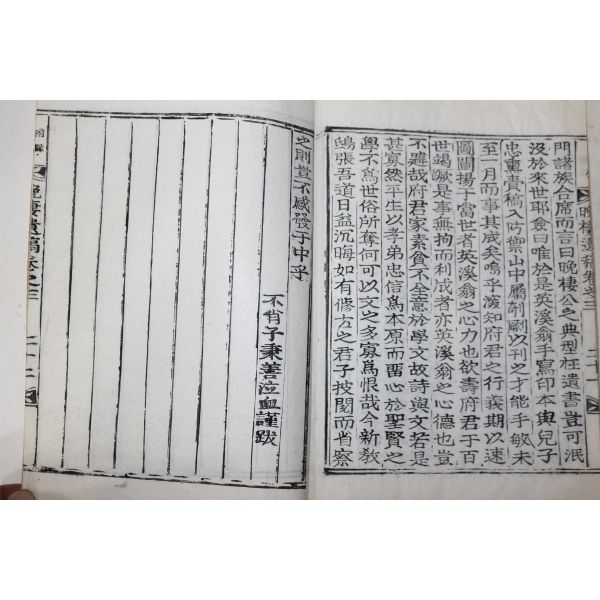 門諸族合席而言曰晩棲公之典型在遺書豈可泯
沒於來世耶僉曰唯於是英溪翁手寫印本與兒子
忠重賚稿入防禦山中屬剞劂以刊之才能手敏未
至一月而事其成矣嗚乎濩知府君之行義期以速
圖闡揚于當世者英溪翁之心力也欲壽府君于百
世竭蹶是事無拘而利成者亦英溪翁之心德也豈
不韙哉府君家素貧不全意於學文故詩與文若是
甚寡然平生以孝弟忠信爲本原而留心於聖賢之
學不爲世俗所奪何可以文之多寡爲恨哉今新敎
鴟張吾道日益沉晦如有修古之君子披閱而省察
晩棲遺稿卷之三
二十一
之則豈不感發于中乎
不肖子秉善泣血謹跋
晩棲遺稿卷之三
二十二